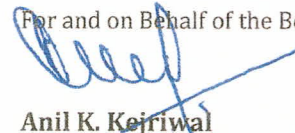 For and on Behalf of the B
Anil K. Kejriwal